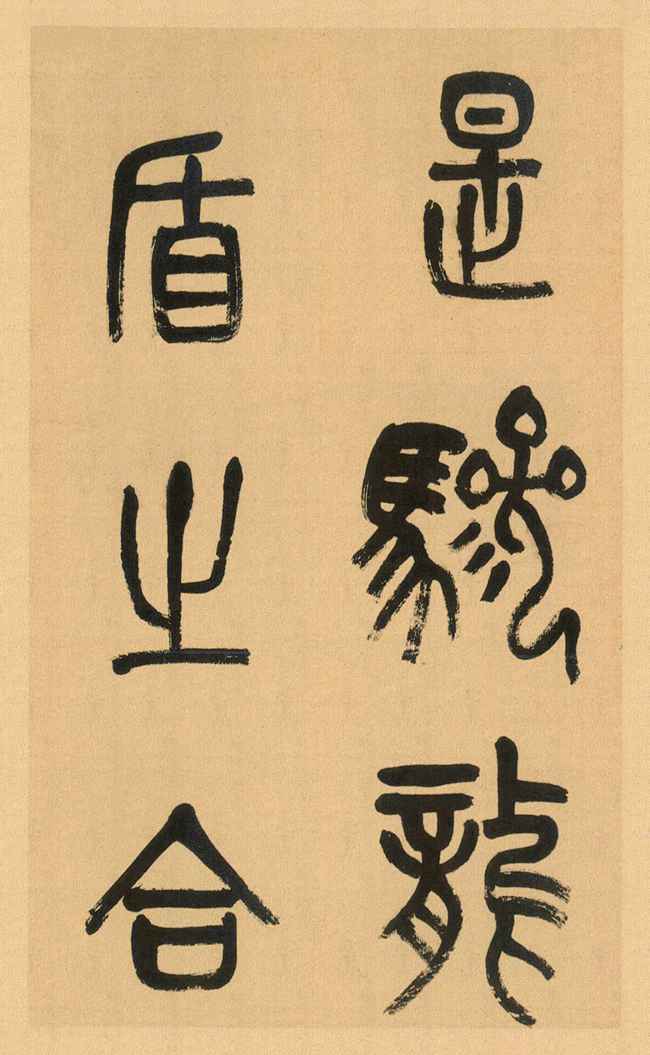 是驂龍
盾之合